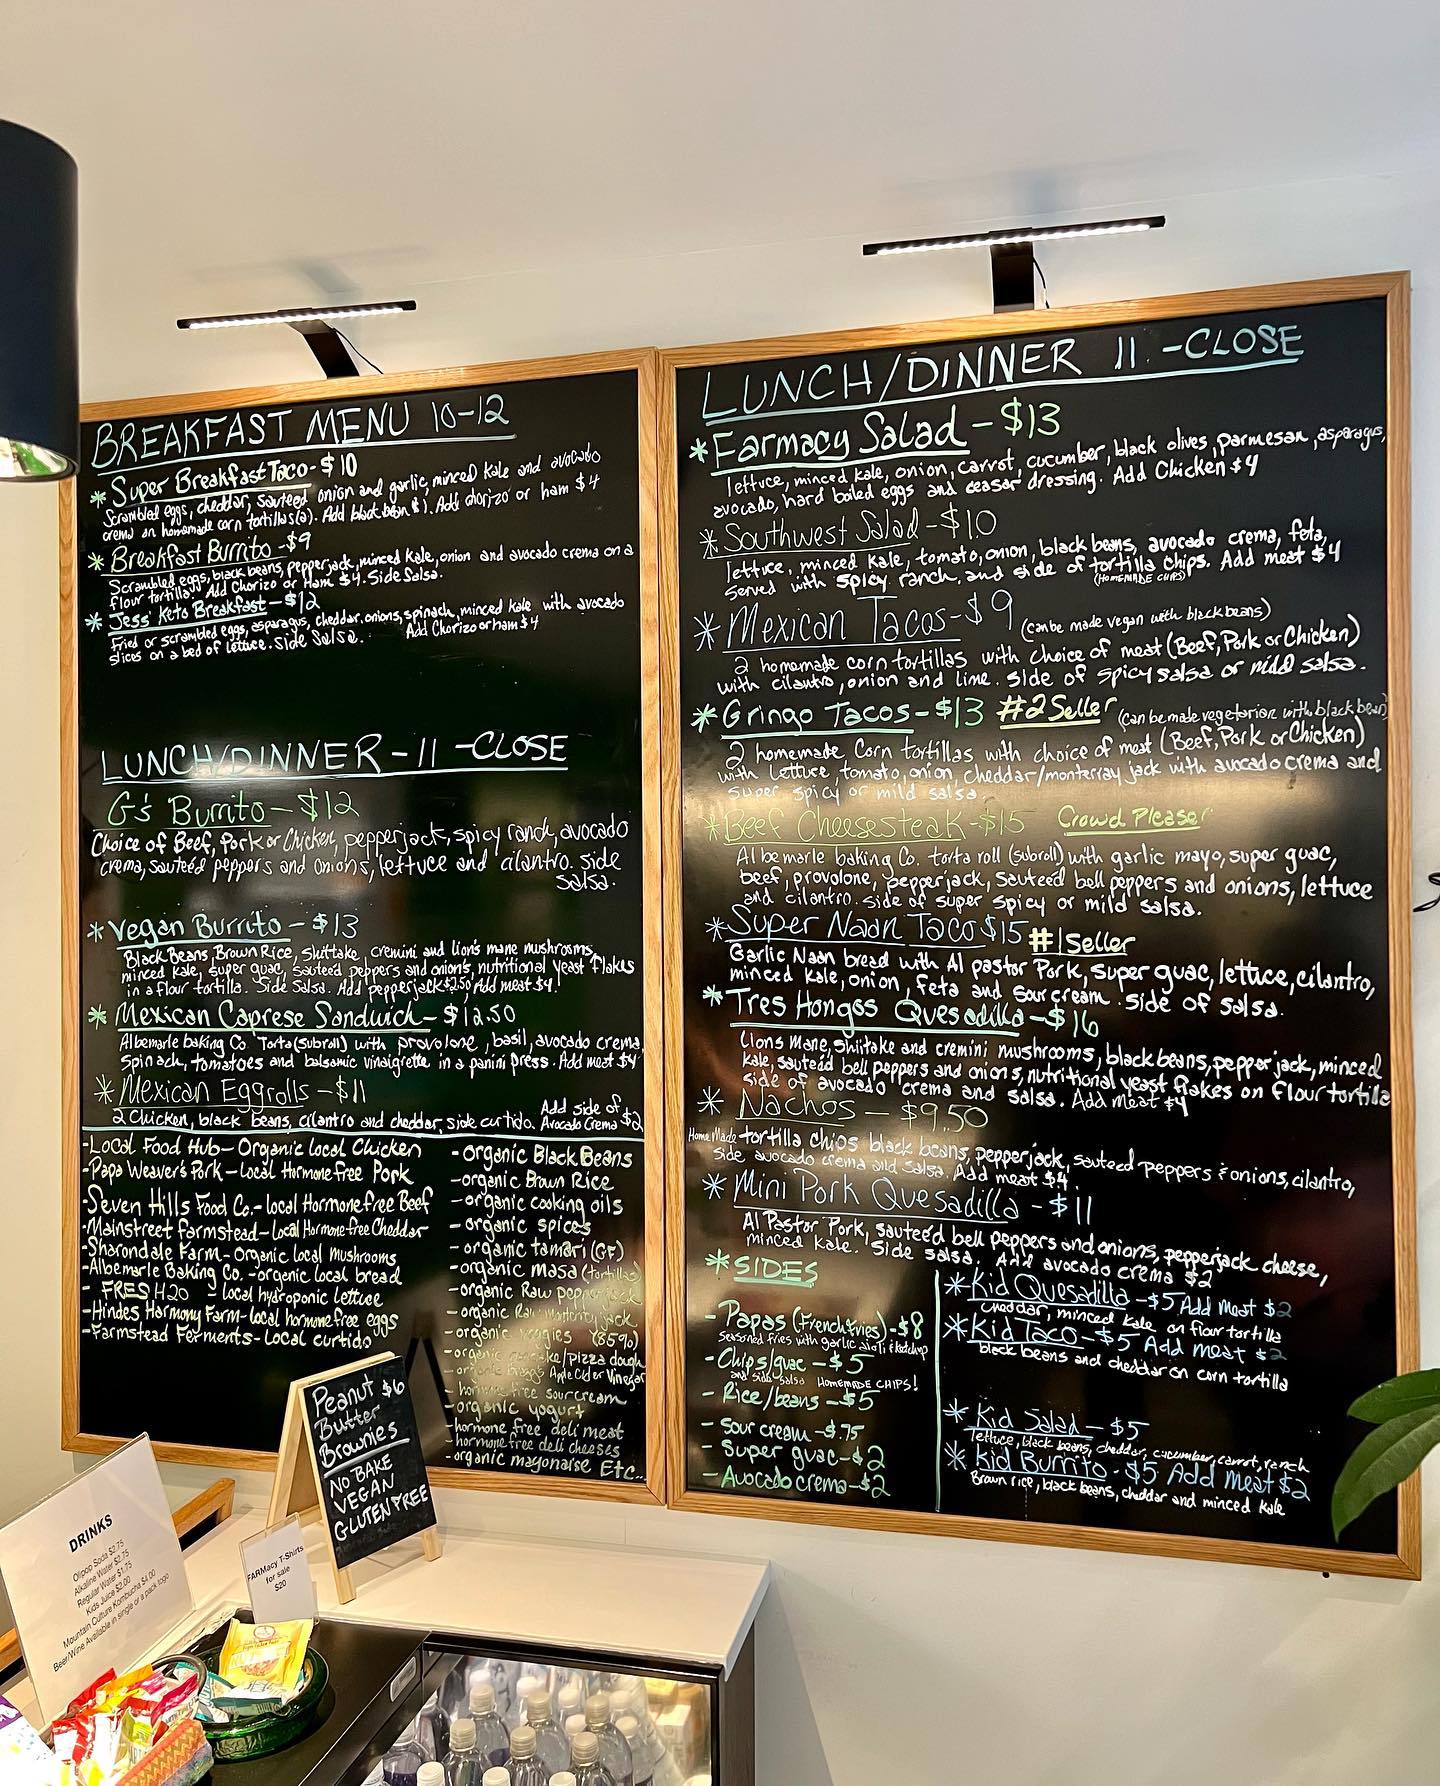 BREAKFAST MENU 10-12
* Super Breakfast Taco - $10
Scrambled eggs, cheddar, sauteed onion and garlic, minced kale and avocado
crema on homemade corn tortillas(2). Add black bean $1. Add chorizo or ham $4
* Breakfast Burrito - $9
Scrambled eggs, black beans, pepperjack, minced kale, onion and avocado crema on a
flour tortilla. Add Chorizo or Ham $4. Side Salsa.
* Jess' Keto Breakfast - $12
Fried or scrambled eggs, asparagus, cheddar, onions, spinach, minced kale with avocado
slices on a bed of lettuce. Side Salsa. Add Chorizo or ham $4
LUNCH/DINNER - 11 - CLOSE
G's Burrito - $12
Choice of Beef, Pork or Chicken, pepperjack, spicy ranch, avocado
crema, sauteéd peppers and onions, lettuce and cilantro. side
salsa.
* Vegan Burrito - $13
Black Beans, Brown Rice, Shittake, cremini and lion's mane mushrooms,
minced kale, super guac, sauteéd peppers and onion's, nutritional yeast flakes
in a flour tortilla. Side Salsa. Add pepperjack $2.50, Add meat $4!
* Mexican Caprese Sandwich - $12.50
Albemarle baking Co Torta (subroll) with provolone, basil, avocado crema,
spinach, tomatoes and balsamic vinaigrette in a panini press. Add meat $4
* Mexican Eggrolls - $11
2 Chicken, black beans, cilantro and cheddar, side curtido. Add side of
Avocado Crema $2
-Local Food Hub - Organic local Chicken
-Papa Weaver's Pork - Local Hormone free Pork
-Seven Hills Food Co. - local Hormone free Beef
-Mainstreet farmstead - Local Hormone free Cheddar
-Sharondale Farm - Organic local mushrooms
-Albemarle Baking Co. - organic local bread
- FRESH2O - local hydroponic lettuce
-Hindes Harmony Farm - local hormone free eggs
-Farmstead Ferments - Local curtido
-organic Black Beans
-organic Brown Rice
-organic cooking oils
-organic spices
-organic tamari (GF)
-organic masa (tortillas)
-organic Raw pepperjack
-organic Raw Monterey jack
-organic veggies (85%)
-organic /pizza dough
-organic Bragg's Apple Cider Vinegar
-hormone free sour cream
-organic yogurt
-hormone free deli meat
-hormone free deli cheeses
-organic mayonaise Etc...
LUNCH/DINNER 11 - CLOSE
* Farmacy Salad - $13
lettuce, minced kale, onion, carrot, cucumber, black olives, parmesan, asparagus,
avocado, hard boiled eggs and ceasar dressing. Add Chicken $4
* Southwest Salad - $10
lettuce, minced kale, tomato, onion, black beans, avocado crema, feta,
served with spicy ranch and side of tortilla chips. Add meat $4
(HOMEMADE CHIPS)
* Mexican Tacos - $9 (can be made vegan with black beans)
2 homemade corn tortillas with choice of meat (Beef, Pork or Chicken)
with cilantro, onion and lime. side of spicy salsa or mild salsa.
* Gringo Tacos - $13 #2 Seller (can be made vegetarian with black bean)
2 homemade Corn tortillas with choice of meat (Beef, Pork or Chicken)
with Lettuce, tomato, onion, cheddar/monterray jack with avocado crema and
super spicy or mild salsa.
* Beef Cheesesteak - $15 Crowd Pleaser
Albemarle baking Co. torta roll (subroll) with garlic mayo, super guac,
beef, provolone, pepperjack, sauteéd bell peppers and onions, lettuce
and cilantro. side of super spicy or mild salsa.
* Super Naan Taco $15 #1 Seller
Garlic Naan bread with Al pastor Pork, super guac, lettuce, cilantro,
minced kale, onion, feta and sour cream. side of salsa.
* Tres Hongos Quesadilla - $16
Lions Mane, shiitake and cremini mushrooms, black beans, pepperjack, minced
kale, sauteéd bell peppers and onions, nutritional yeast flakes on flour tortilla
side of avocado crema and salsa. Add meat $4
* Nachos - $9.50
Home Made tortilla chips black beans, pepperjack, sauteed peppers & onions, cilantro,
side, avocado crema and salsa. Add meat $4.
* Mini Pork Quesadilla - $11
Al Pastor Pork, sauteéd bell peppers and onions, pepperjack cheese,
minced kale. Side salsa. Add avocado crema $2
* SIDES
- Papas (French fries) - $8
seasoned fries with garlic aioli & ketchup
- Chips/guac - $5
and side salsa HOMEMADE CHIPS!
- Rice/beans - $5
- Sour cream - $.75
- Super guac - $2
- Avocado crema - $2
* Kid Quesadilla - $5 Add meat $2
cheddar, minced kale on flour tortilla
* Kid Taco - $5 Add meat $2
black beans and cheddar on corn tortilla
* Kid Salad - $5
lettuce, black beans, cheddar, cucumber, carrot, ranch
* Kid Burrito - $5 Add meat $2
Brown rice, black beans, cheddar and minced kale
Peanut $6
Butter
Brownies
NO BAKE
VEGAN
GLUTEN FREE
DRINKS
Olipop Soda $2.75
Alkaline Water $2.75
Regular Water $1.75
Kids Juice $2.00
Mountain Culture Kombucha $4.00
Beer/Wine Available in single or a pack togo
FARMacy T-Shirts
for sale
$20